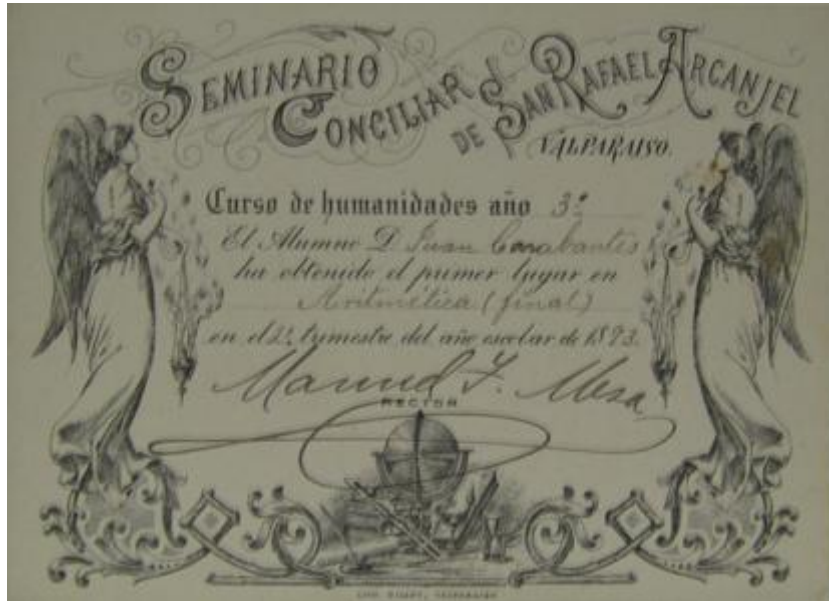 SEMINARIO CONCILIAR DE SAN RAFAEL ARCANJEL
VALPARAISO.
Curso de humanidades año 3º
El Alumno D. Juan
ha obtenido el primer lugar en
Aritmética (final)
en el 2º trimestre del año escolar de 1893.
Manuel F. Mesa
RECTOR